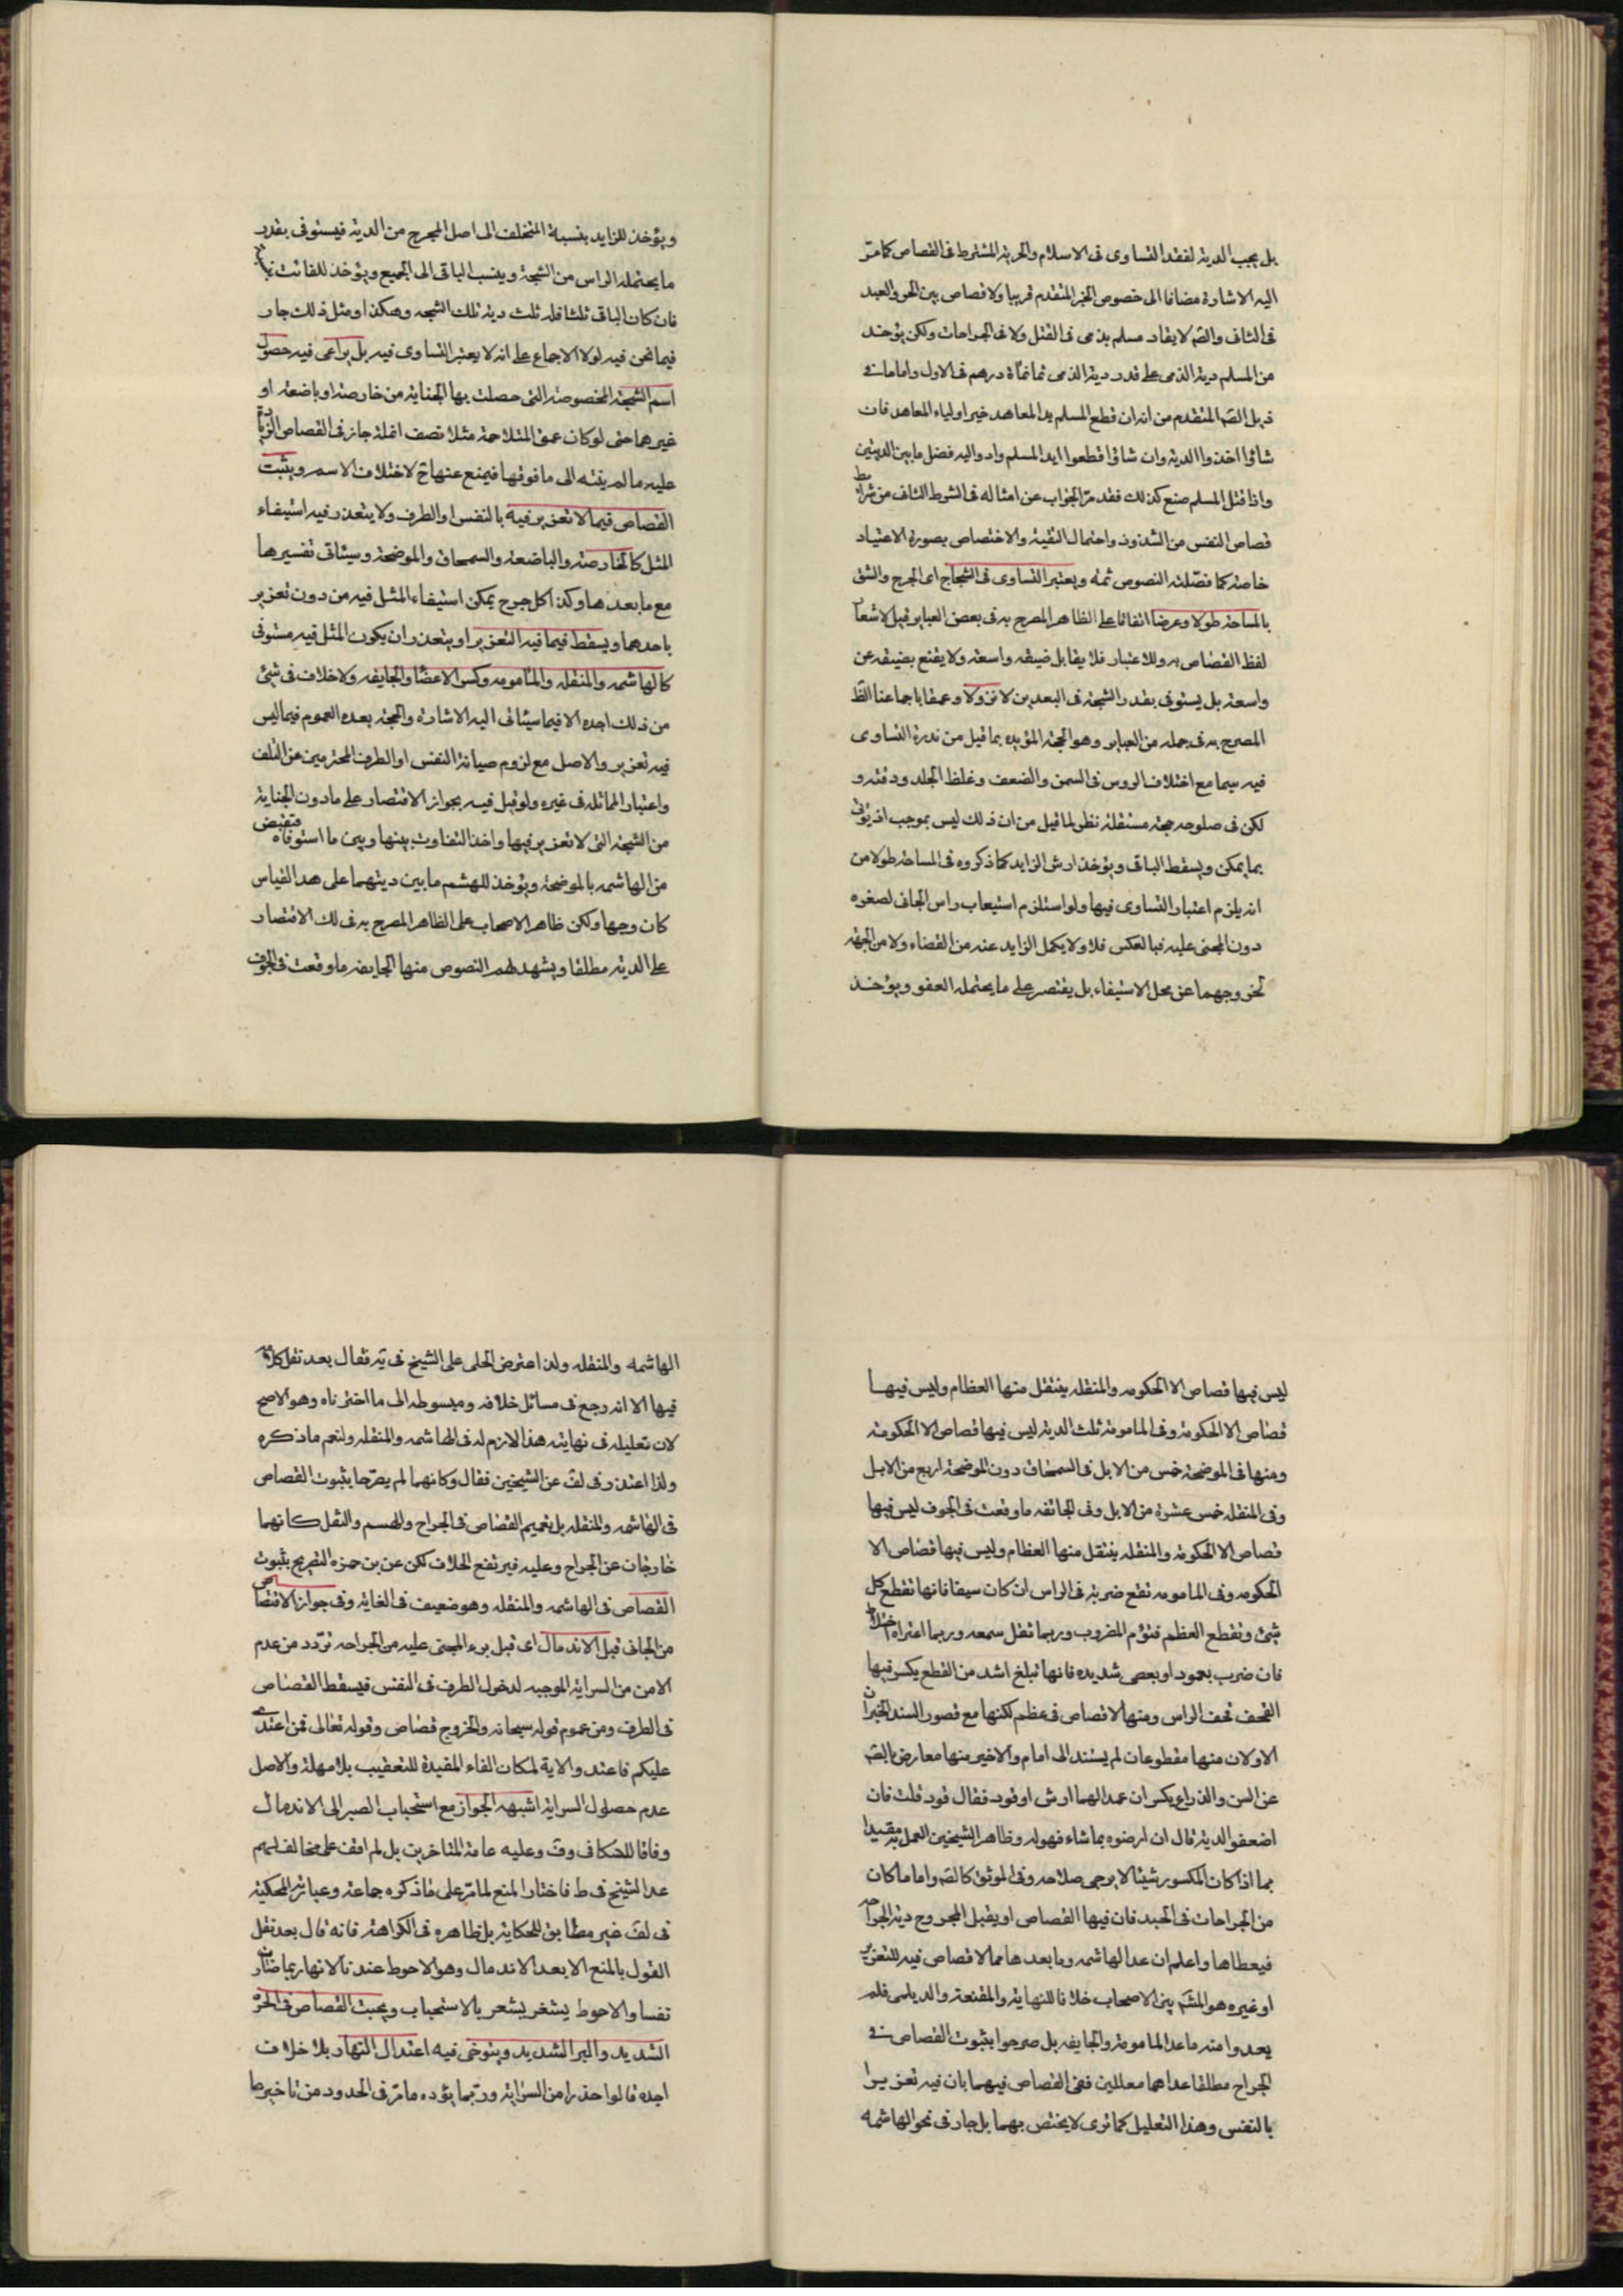 بل يجب الدية لفقد التساوى فى الاسلام والحرية المشترط فى القصاص كما مرّ
اليه الاشارة مضافا الى خصوص الخبر المتقدم قريبا ولا قصاص بين الحر والعبد
فى الثانى والصم لا يقاد مسلم بذمى فى القتل ولا فى الجراحات ولكن يؤخذ
من المسلم دية الذمى على قدر دية الذمى ثمانمأة درهم فى الاول واما ما فے
ذيل الصم المتقدم من انه ان قطع المسلم يد المعاهد خير اولياء المعاهد فان
شاؤا اخذوا الدية وان شاؤا قطعوا ايد المسلم وادوا اليه فضل ما بين الديتين
واذا قتل المسلم صنع كذلك فقد مرّ الجواب عن امثاله فى الشرط الثانى من شرائط
قصاص النفس من الشذوذ واحتمال التقية والاختصاص بصورة الاعتياد
خاصة كما فصّلته النصوص ثمه ويعتبر التساوى فى الشجاج اى الجرح والشق
بالمساحة طولا وعرضا اتفاقا على الظاهر المصرح به فى بعض العباير قيل لاشعار
لفظ القصاص به وللاعتبار فلا يقابل ضيقه واسعة ولا يقنع بضيقه عن
واسعة بل يستوفى بقدر الشجة فى البعدين لا نزولا وعمقا باجماعنا الظ
المصرح به فى جمله من العباير وهو الحجة المؤيده بما قيل من ندرة التساوى
فيه سيما مع اختلاف الروس فى السمن والضعف وغلظ الجلد ودقته و
لكن فى صلوحه حجة مستقلة نظر لما قيل من ان ذلك ليس بموجب اذ يؤتى
بما يمكن ويسقط الباقى ويؤخذ ارش الزايد كما ذكروه فى المساحة طولا من
انه يلزم اعتبار التساوى فيها ولو استلزم استيعاب راس الجانى لصغره
دون المجنى عليه فبالعكس فلا ولا يكمل الزايد عنه من القضاء ولا من الجبهة
لخروجهما عن محل الاستيفاء بل يقتصر على ما يحتمله العفو ويؤخذ
ويؤخذ للزايد بنسبة المتخلف الى اصل الجرح من الدية فيستوفى بقدر
ما يحتمله الراس من الشجة وينسب الباقى الى الجميع ويؤخذ للفائت
فان كان الباقى ثلثا فله ثلث دية تلك الشجه وهكذا ومثل ذلك جار
فيما نحن فيه لولا الاجماع على انه لا يعتبر التساوى فيه بل يراعى فيه حصول
اسم الشجة المخصوصة التى حصلت بها الجناية من خارصة او باضعة او
غيرهما حتى لو كان عمق المتلاحمة مثلا نصف انملة جاز فى القصاص الزيادة
عليه ما لم ينته الى ما فوقها فيمنع عنها ح لاختلاف الاسم ويثبت
القصاص فيما لا تعزير فيه بالنفس او الطرف ولا يتعذر فيه استيفاء
المثل كالخارصة والباضعة والسمحاق والموضحة وسيئاتى تفسيرها
مع ما بعدها وكذا كل جرح يمكن استيفاء المثل فيه من دون تعزير
باحدهما ويسقط فيما فيه التعزير او يتعذر ان يكون المثل فيه مستوفى
كالهاشمه والمنقله والمامومه وكسر الاعضا والجايفه ولا خلاف فى شئ
من ذلك اجده الا فيما سيئاتى اليه الاشارة والحجة بعده العموم فيما ليس
فيه تعزير والاصل مع لزوم صيانة النفس او الطرف المحترمين عن التلف
واعتبار المماثله فى غيره ولو قيل فيه بجواز الاقتصار على ما دون الجناية
من الشجة التى لا تعزير فيها واخذ التفاوت بينها وبين ما استوفاه فيقتص
من الهاشمه بالموضحة ويؤخذ للهشم ما بين ديتهما على هذ القياس
كان وجها ولكن ظاهر الاصحاب على الظاهر المصرح به فى لك الاقتصار
على الدية مطلقا ويشهد لهم النصوص منها الجايفه ما وقعت فى الجوف
ليس فيها قصاص الا الحكومه والمنقله ينتقل منها العظام وليس فيها
قصاص الا الحكومة وفى المامومة ثلث الدية ليس فيها قصاص الا الحكومة
ومنها فى الموضحة خمس من الابل فى السمحاق دون الموضحة اربع من الابل
وفى المنقله خمس عشرة من الابل وفى الجائفه ما وقعت فى الجوف ليس فيها
قصاص الا الحكومة والمنقله ينتقل منها العظام وليس فيها قصاص الا
الحكومه وفى المامومه تقع ضربة فى الراس ان كان سيفا فانها تقطع كل
شئ وتقطع العظم فتؤم المضروب وربما ثقل سمعه وربما اعتراه اختلاط
فان ضرب بعمود او بعصى شديده فانها تبلغ اشد من القطع يكسر فيها
القحف قحف الراس ومنها لا قصاص فى عظم لكنها مع قصور السند الخبران
الاولان منها مقطوعان لم يسندا الى امام والاخير منها معارض بالصم
عن السن والذراع يكسران عمدا لهما ارش او قود فقال قود قلت فان
اضعفوا الدية قال ان ارضوه بما شاء فهوله وظاهر الشيخين العمل به مقيدا
بما اذا كان المكسور شيئا لا يرجى صلاحه وفى الموثق كالصم واما ما كان
من الجراحات فى الجسد فان فيها القصاص او يقبل المجروح دية الجراحة
فيعطاها واعلم ان عد الهاشمه وما بعدها مما لا قصاص فيه للتعزير
او غيره هو المشم بين الاصحاب خلافا للنهاية والمقنعة والديلمى فلم
يعدوا منه ما عدا المامومة والجايفه بل صرحوا بثبوت القصاص فے
الجراح مطلقا عداهما معللين فنفى القصاص فيهما بان فيه تعزيرا
بالنفس وهذا التعليل كما ترى لا يختص بهما بل جار فى نحو الهاشمه
الهاشمه والمنقله ولذا اعترض الحلى على الشيخ فى يه فقال بعد نقل كلامه
فيها الا انه رجع فى مسائل خلافه ومبسوطه الى ما اخترناه وهو الاصح
لان تعليله فى نهايته هذا لازم له فى الهاشمه والمنقله ولنعم ما ذكره
ولذا اعتذر فى لف عن الشيخين فقال وكانهما لم يصرّحا بثبوت القصاص
فى الهاشمه والمنقله بل بتعميم القصاص فى الجراح والهشم والنقل كانهما
خارجان عن الجراح وعليه فيرتفع الخلاف لكن عن بن حمزه التصريح بثبوت
القصاص فى الهاشمه والمنقله وهو ضعيف فى الغاية وفى جواز الاقتصاص
من الجانى قبل الاندمال اى قبل برء المجنى عليه من الجراحه تردّد من عدم
الامن من السراية الموجبه لدخول الطرف فى النفس فيسقط القصاص
فى الطرف ومن عموم قوله سبحانه والخروج قصاص وقوله تعالى فمن اعتدى
عليكم فاعتدوا الاية لمكان الفاء المقيدة للتعقيب بلا مهلة والاصل
عدم حصلول السراية اشبهه الجواز مع استحباب الصبر الى الاندمال
وفاقا للشكافى وفَ وعليه عامة المتاخرين بل لم اقف على مخالف لهم
عدا الشيخ فى ط فاختار المنع لما مرّ على ما ذكره جماعة وعبارته المحكية
فى لف غير مطابق للحكاية بل ظاهره فى الكراهة فانه قال بعد نقل
القول بالمنع الا بعد الاندمال وهو الاحوط عندنا لانها ربما صار
نفسا والاحوط يشعر بالاستحباب ويجب القصاص فى الحرّ
الشديد والبر الشديد ويتوخى فيه اعتدال النهار بلا خلاف
اجده قالوا حذرا من السراية وربّما يؤده ما مرّ فى الحدود من تاخيرها